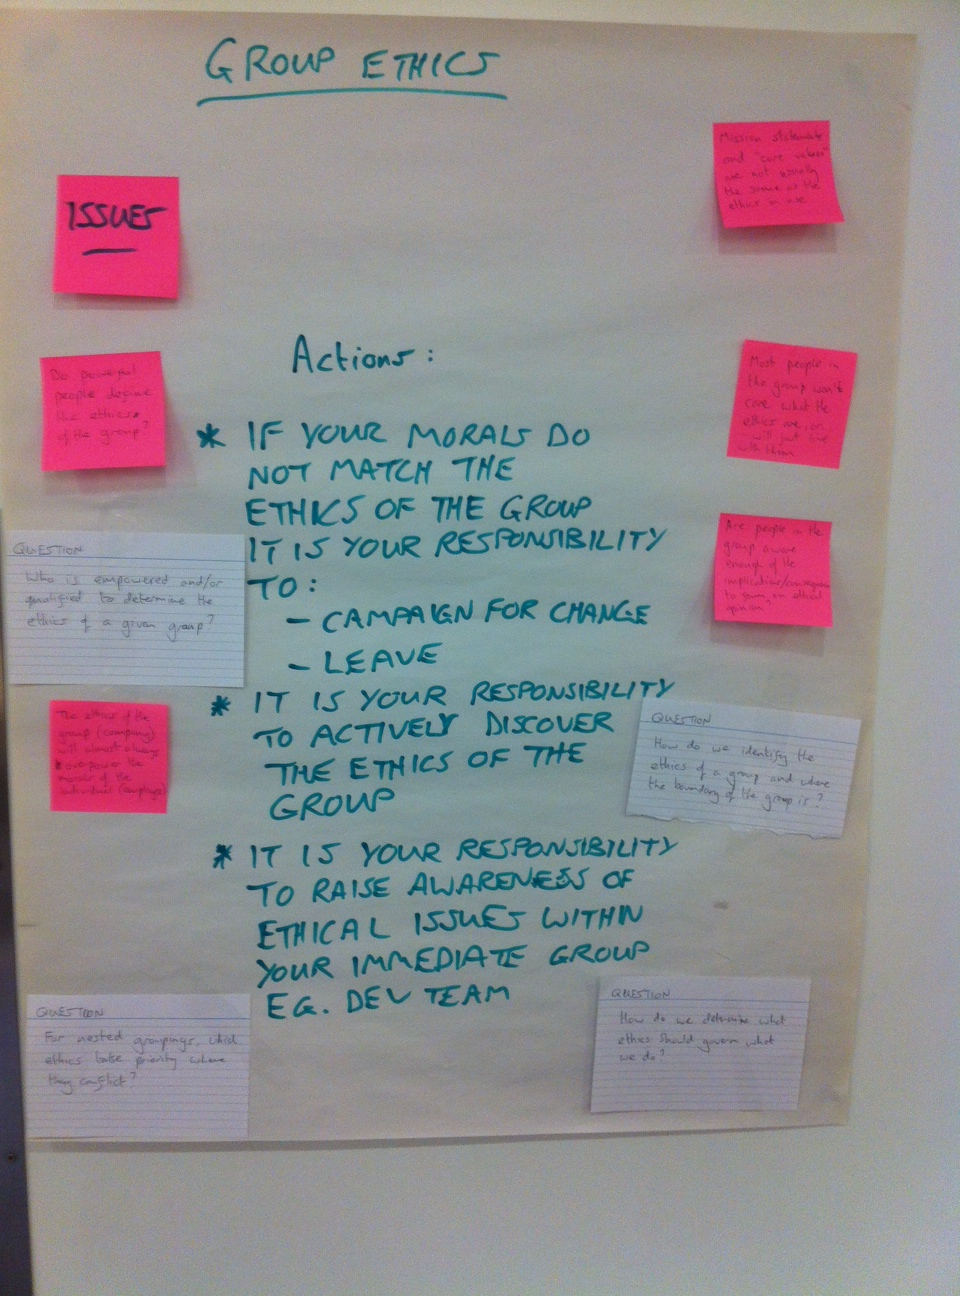 GROUP ETHICS
ISSUES
Do powerful
people define
the ethics
of the group?
QUESTION
Who is empowered and/or
qualified to determine the
ethics of a given group?
The ethics of the
group (company)
will almost always
overpower the
morals of the
individual (employee)
QUESTION
For nested groupings, which
ethics take priority where
they conflict?
Actions:
* IF YOUR MORALS DO
NOT MATCH THE
ETHICS OF THE GROUP
IT IS YOUR RESPONSIBILITY
TO:
- CAMPAIGN FOR CHANGE
- LEAVE
* IT IS YOUR RESPONSIBILITY
TO ACTIVELY DISCOVER
THE ETHICS OF THE
GROUP
* IT IS YOUR RESPONSIBILITY
TO RAISE AWARENESS OF
ETHICAL ISSUES WITHIN
YOUR IMMEDIATE GROUP
EG. DEV TEAM
Mission statements
and "core values"
are not usually
the same as the
ethics in use
Most people in
the group won't
care what the
ethics are, or
- will just live
with them
Are people in the
group aware
enough of the
implications/consequences
to form an ethical
opinion?
QUESTION
How do we identify the
ethics of a group and where
the boundary of the group is?
QUESTION
How do we determine what
ethics should govern what
we do?